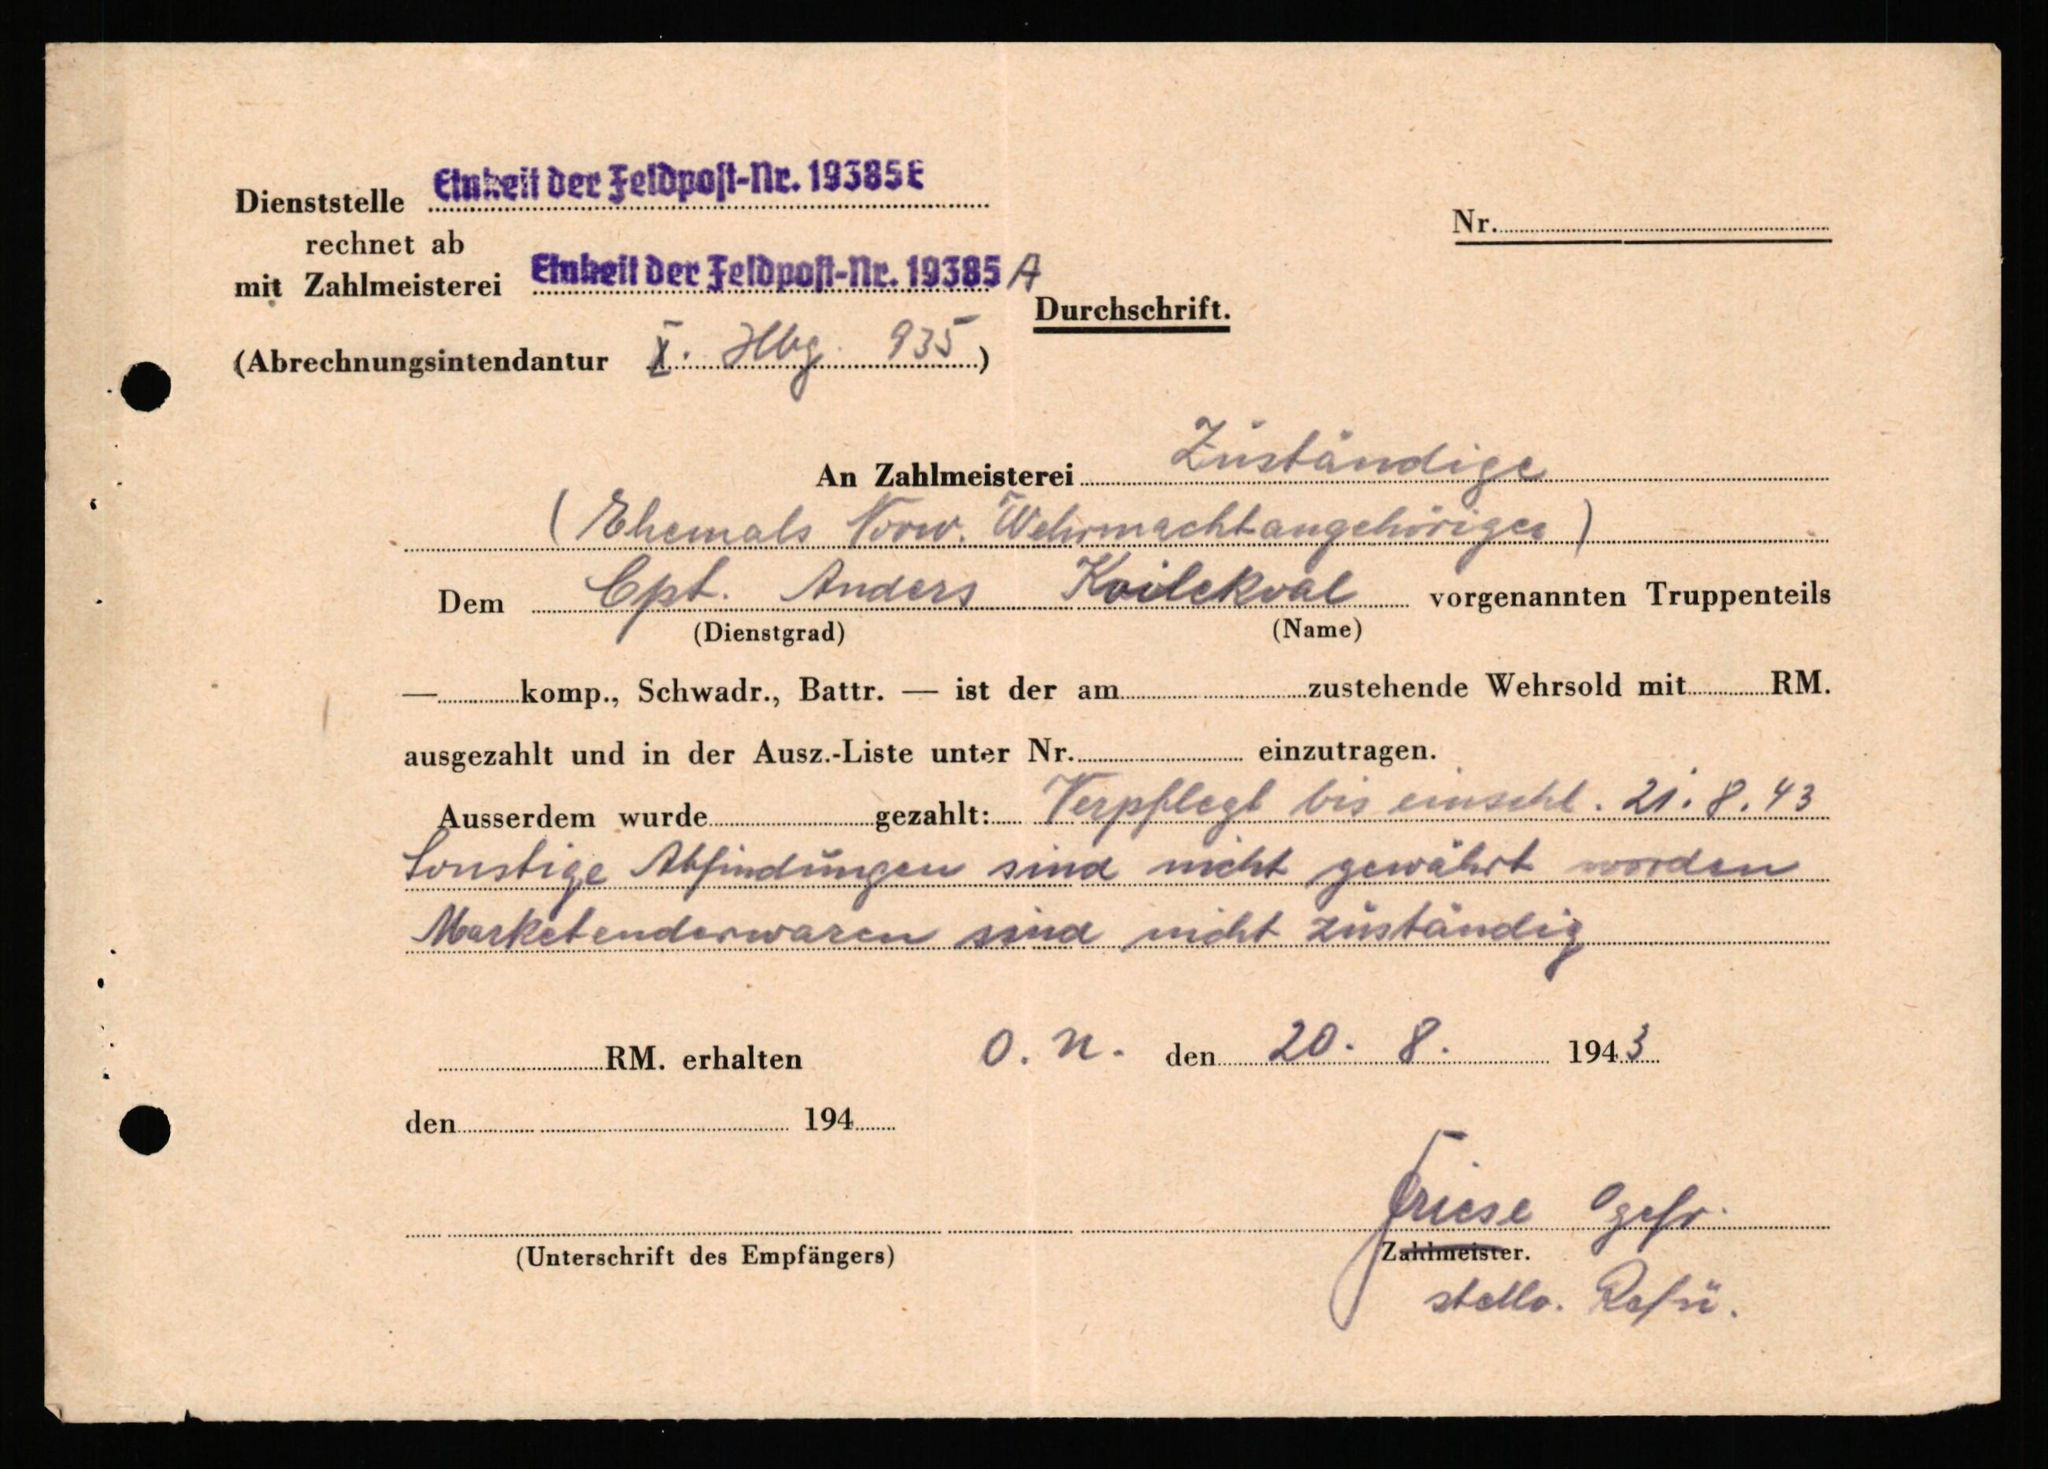 Dienststelle Einheit der Feldpost-Nr. 19385E
Nr.
rechnet ab
mit Zahlmeisterei Einheit der Feldpost-Nr. 19385 A
Durchschrift.
(Abrechnungsintendantur X. Hbg. 935)
An Zahlmeisterei Zuständige
(Ehemals Norw. Wehrmachtangehörigen)
Dem Cpt. Anders Kvilekval vorgenannten Truppenteils
(Dienstgrad) (Name)
— komp., Schwadr., Battr. — ist der am zustehende Wehrsold mit RM.
ausgezahlt und in der Ausz.-Liste unter Nr. einzutragen.
Ausserdem wurde gezahlt: Verpflegt bis einschl. 21.8.43
Sonstige Abfindungen sind nicht gewährt worden
Marketenderwaren sind nicht zuständig
RM. erhalten O. N. den 20. 8. 1943
den 194
Friese Ogefr.
(Unterschrift des Empfängers) Zahlmeister.
stellv. Refü.